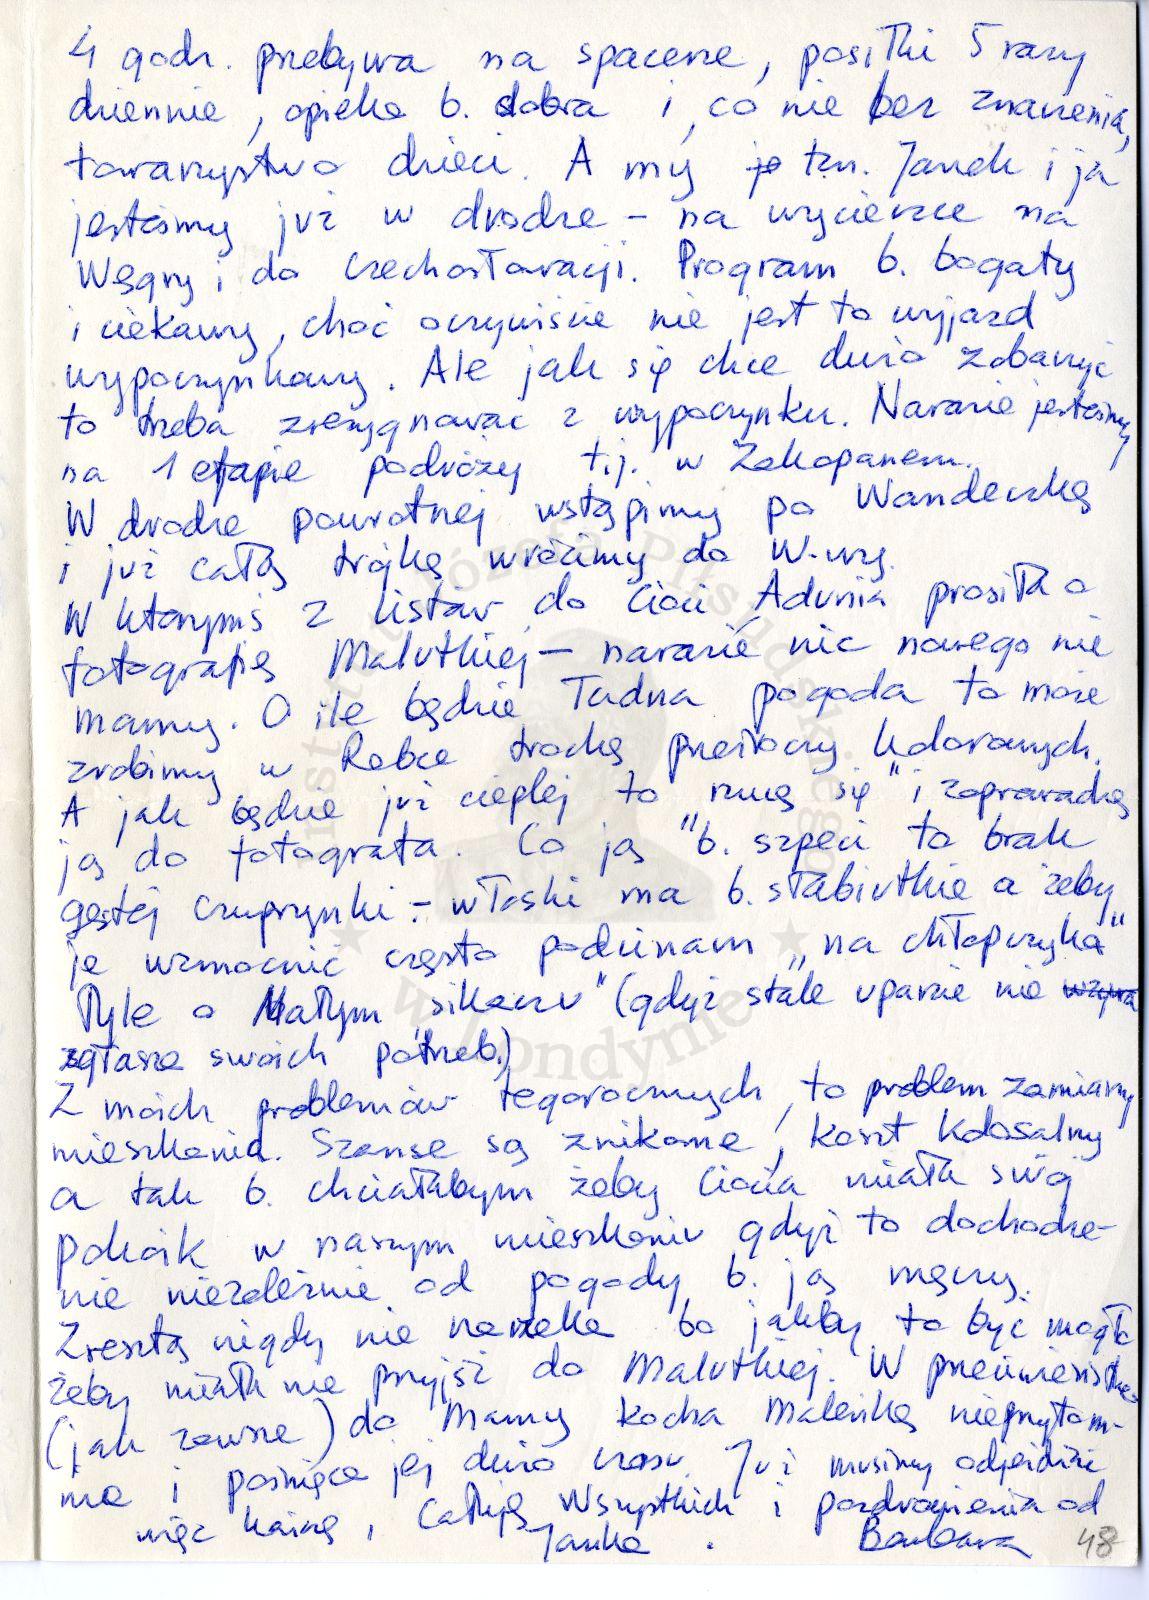 4 godz. przebywa na spacerze, posiłki 5 razy
dziennie, opieka b. dobra i, co nie bez znaczenia,
towarzystwo dzieci. A my je tzn. Janek i ja
jesteśmy już w drodze – na wycieczce na
Węgry i do Czechosłowacji. Program b. bogaty
i ciekawy, choć oczywiście nie jest to wyjazd
wypoczynkowy. Ale jak się chce dużo zobaczyć
to trzeba zrezygnować z wypoczynku. Narazie jesteśmy
na 1 etapie podróży t.j. w Zakopanem.
W drodze powrotnej wstąpimy po Wandeczkę
i już całą trójką wrócimy do W-wy.
W którymś z listów do Cioci, Adunia prosiła o
fotografię Malutkiej – narazie nic nowego nie
mamy. O ile będzie ładna pogoda to może
zrobimy w Rabce trochę przeźroczy kolorowych.
A jak będzie już cieplej to „rzucę się" i zaprowadzę
ją do fotografa. Co ją b. szpeci to brak
gęstej czuprynki – włoski ma b. słabiutkie a żeby
je wzmocnić często podcinam „na chłopczyka"
Tyle o Małym „sikaczu" (gdyż stale uparcie nie
zgłasza swoich potrzeb.)
Z moich problemów tegorocznych, to problem zamiany
mieszkania. Szanse są znikome, koszt kolosalny
a tak b. chciałabym żeby Ciocia miała swój
pokoik w naszym mieszkaniu gdyż to dochodze-
nie niezależnie od pogody b. ją męczy.
Zresztą nigdy nie narzeka bo jakby to być mogło
żeby miała nie przyjść do Malutkiej. W przeciwieństwie
(jak zawsze) do Mamy kocha Maleńką nieprzytom-
nie i poświęca jej dużo czasu. Już musimy odjeżdżać
więc kończę, Całuję Wszystkich i pozdrowienia od
Janka. Barbara 48
Instytut Józefa Piłsudskiego
w Londynie